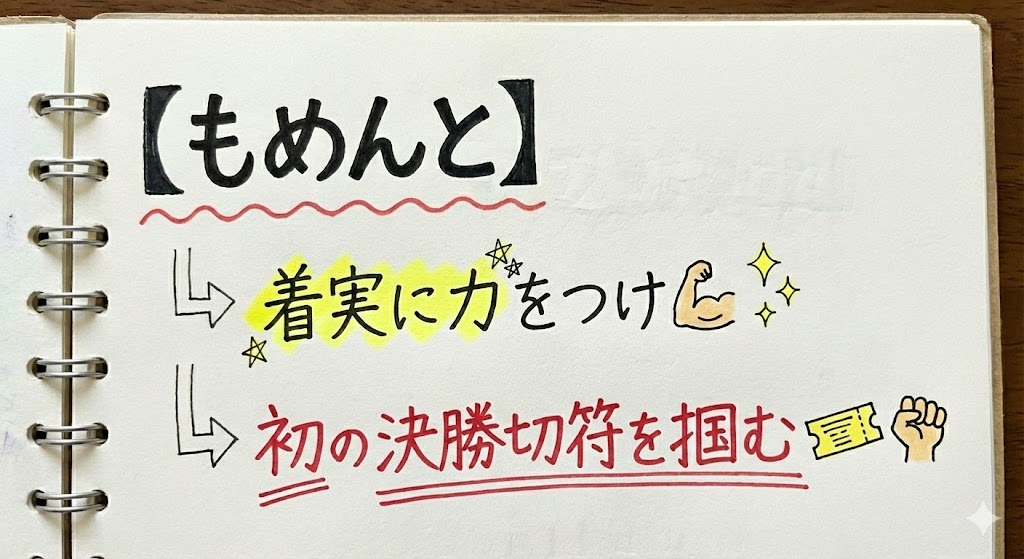 【もめんと】
着実に力をつけ
初の決勝切符を掴む